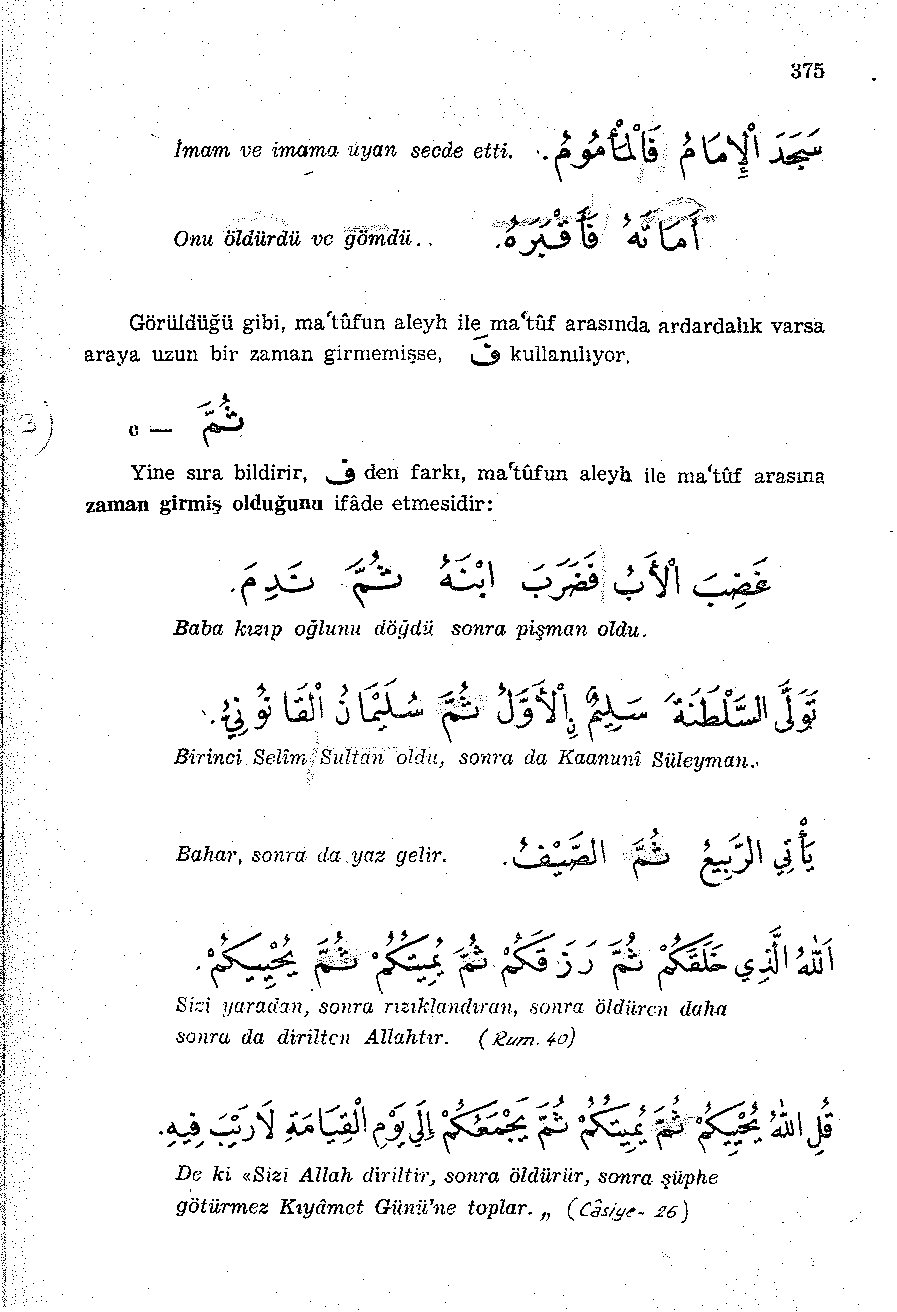 375
İmam ve imama uyan secde etti. سَجَدَ الْإِمَامُ فَالْمَأْمُومُ.
Onu öldürdü ve gömdü.. أَمَاتَهُ فَأَقْبَرَهُ.
Görüldüğü gibi, ma'tûfun aleyh ile ma'tûf arasında ardardalık varsa
araya uzun bir zaman girmemişse, فَ kullanılıyor.
c — ثُمَّ
Yine sıra bildirir, فَ den farkı, ma'tûfun aleyh ile ma'tûf arasına
zaman girmiş olduğunu ifâde etmesidir:
غَضِبَ الْأَبُ فَضَرَبَ ابْنَهُ ثُمَّ نَدِمَ.
Baba kızıp oğlunu döğdü sonra pişman oldu.
تَوَلَّى السَّلْطَنَةَ سَلِيمٌ الْأَوَّلُ ثُمَّ سُلَيْمَانُ الْقَانُونِيُّ.
Birinci Selîm Sultan oldu, sonra da Kaanunî Süleyman..
Bahar, sonra da yaz gelir. يَأْتِي الرَّبِيعُ ثُمَّ الصَّيْفُ.
اَللّٰهُ الَّذِي خَلَقَكُمْ ثُمَّ رَزَقَكُمْ ثُمَّ يُمِيتُكُمْ ثُمَّ يُحْيِيكُمْ.
Sizi yaradan, sonra rızıklandıran, sonra öldüren daha
sonra da dirilten Allahtır. (Rum. 40)
قُلِ اللّٰهُ يُحْيِيكُمْ ثُمَّ يُمِيتُكُمْ ثُمَّ يَجْمَعُكُمْ إِلَى يَوْمِ الْقِيَامَةِ لَا رَيْبَ فِيهِ.
De ki «Sizi Allah diriltir, sonra öldürür, sonra şüphe
götürmez Kıyâmet Günü'ne toplar. „ (Câsiye- 26)